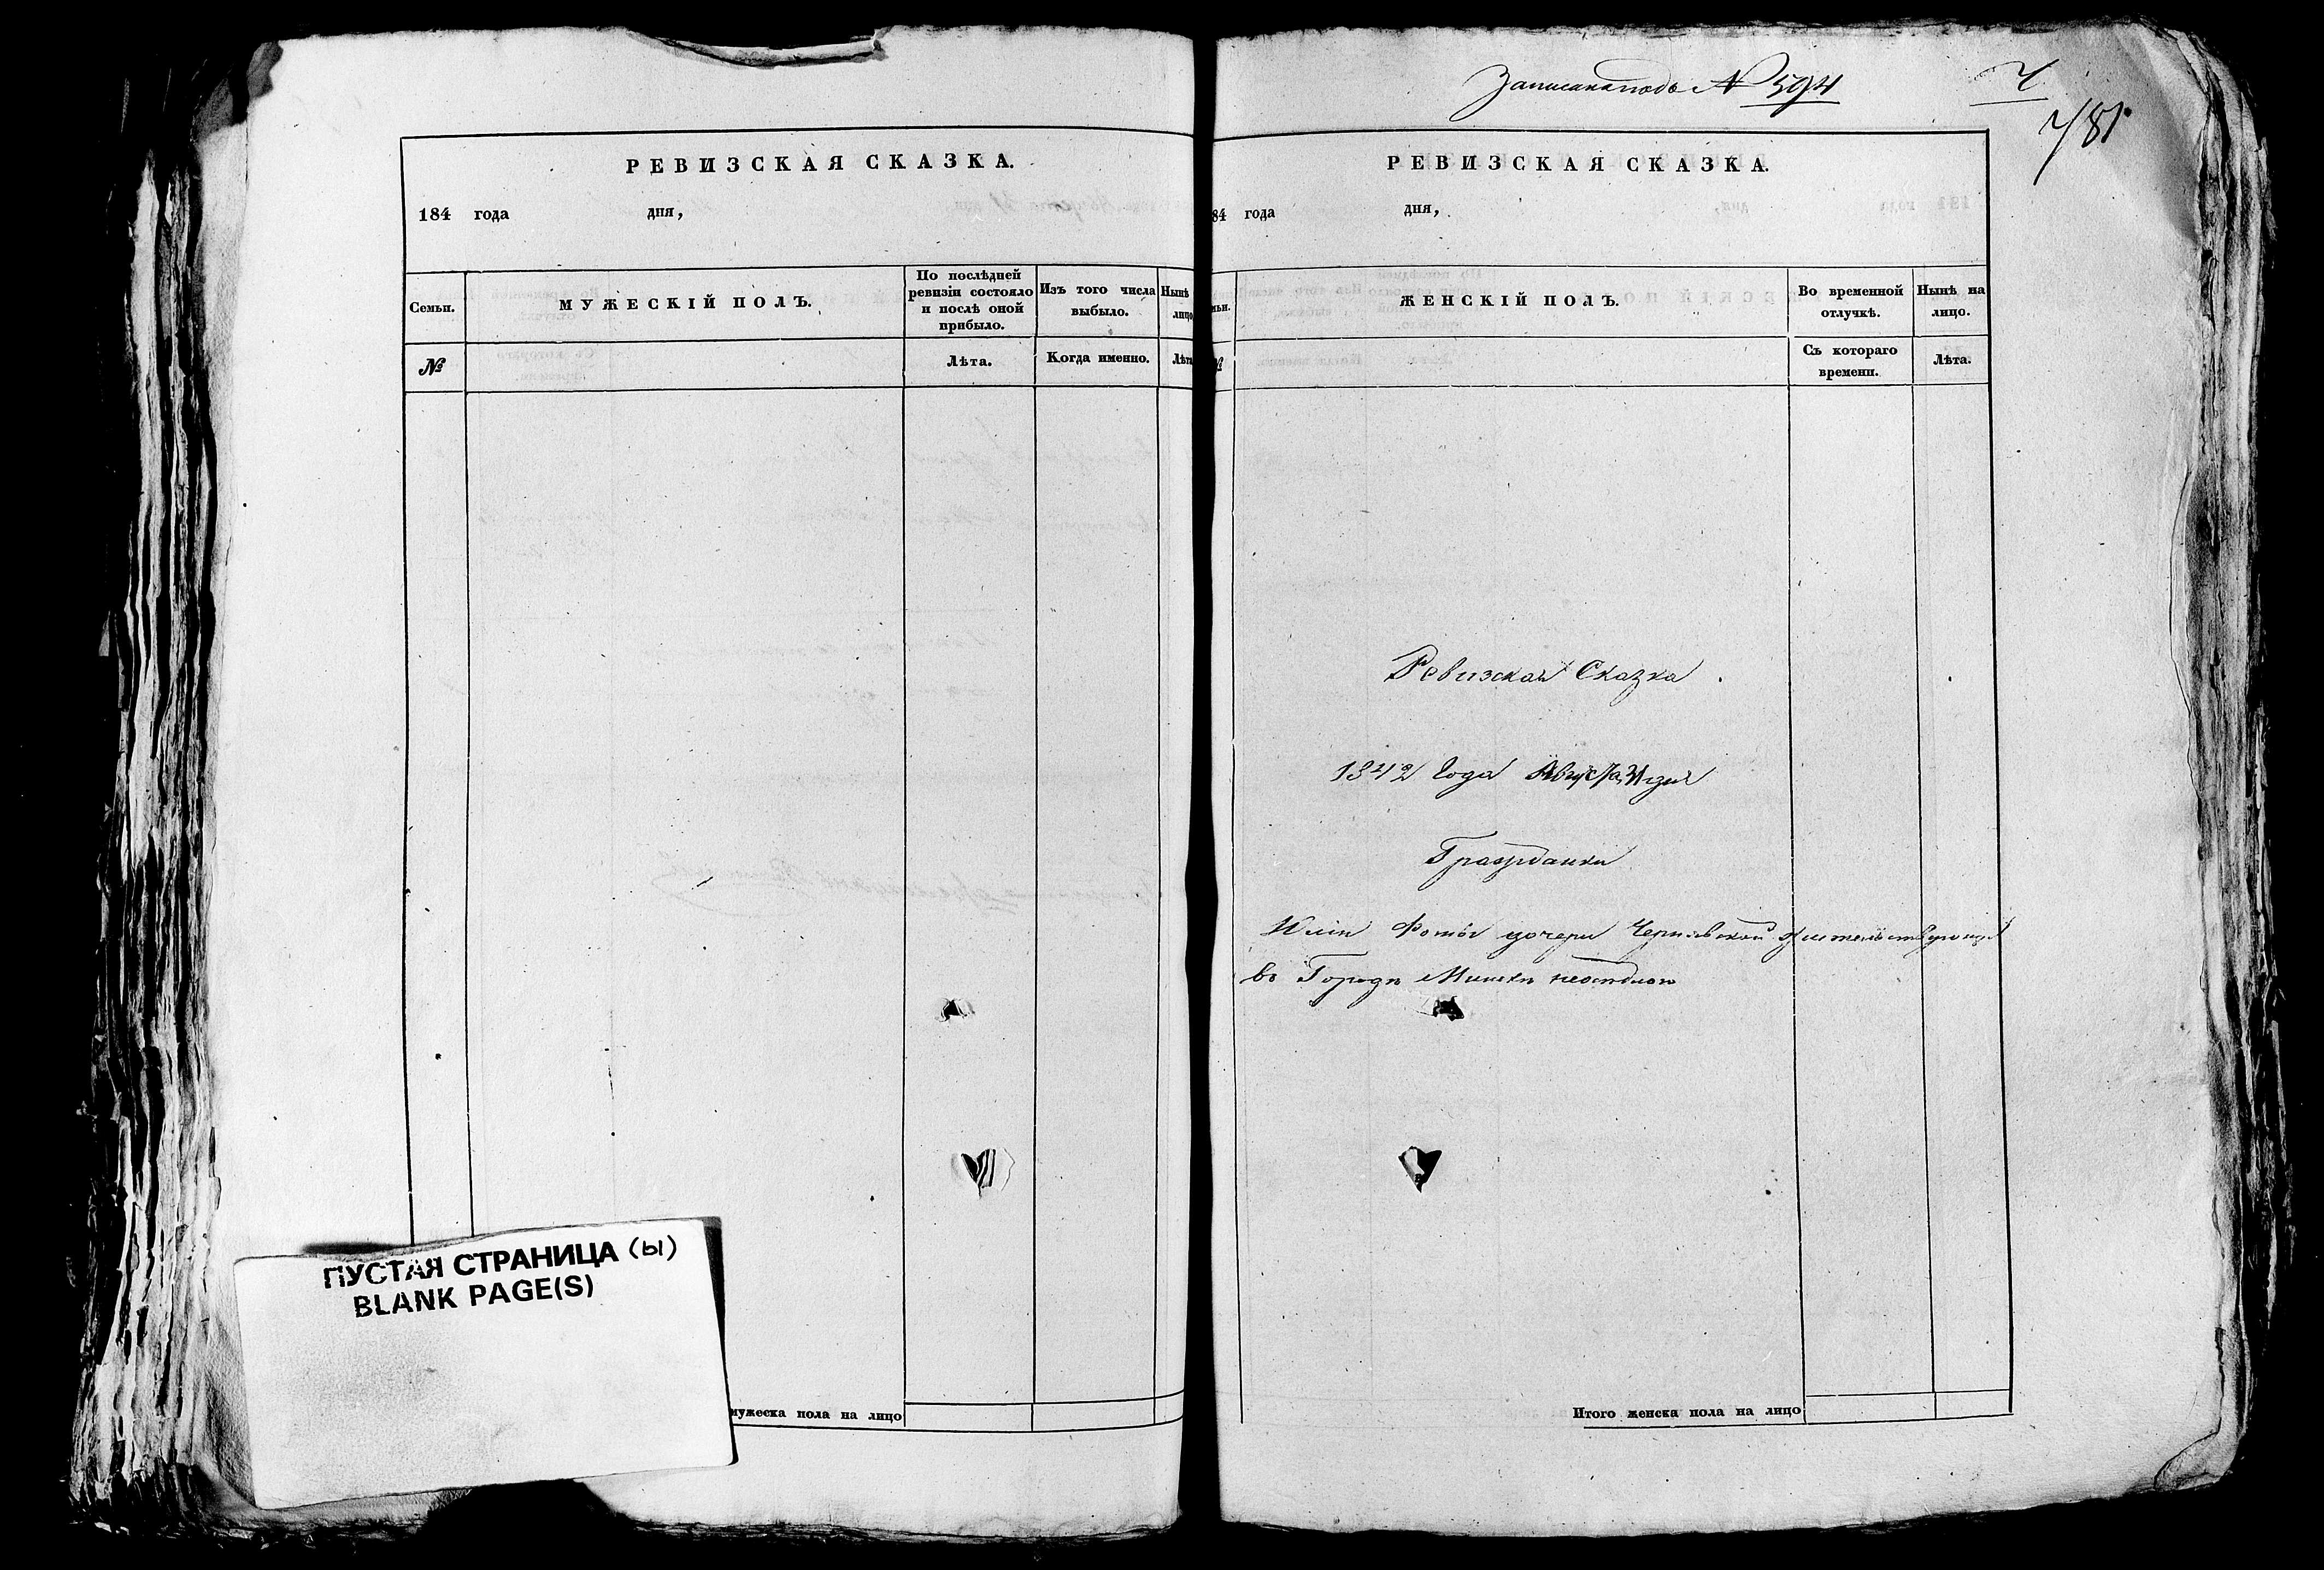 РЕВИЗСКАЯ СКАЗКА.
184 года дня,
Семьи.
МУЖЕСКІЙ ПОЛЪ.
По послѣдней
ревизіи состояло
и послѣ оной
прибыло.
Изъ того числа
выбыло.
Нынѣ
лицо
№
Лѣта.
Когда именно.
Лѣта
мужеска пола на лицо
ПУСТАЯ СТРАНИЦА (ы)
BLANK PAGE(S)
Записана подъ № 594
781
РЕВИЗСКАЯ СКАЗКА.
84 года дня,
ЖЕНСКІЙ ПОЛЪ.
Во временной
отлучкѣ.
Нынѣ на
лицо.
Съ котораго
времени.
Лѣта.
Ревизская Сказка
1842 Года Августа 31 дня
Гражданки
Фомы дочери Чернявской жительствующей
въ Городѣ Минскѣ
Итого женска пола на лицо